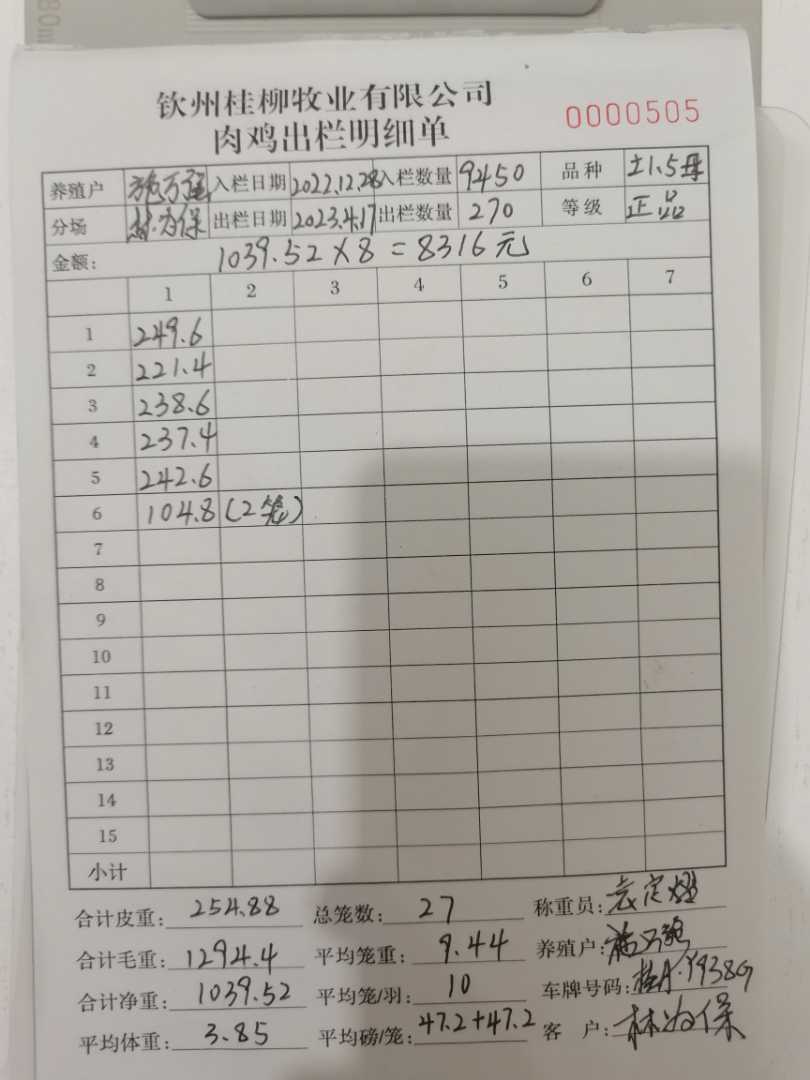 钦州桂柳牧业有限公司
肉鸡出栏明细单
0000505
养殖户 施万强 入栏日期 2022.12.28 入栏数量 9450 品种 土1.5母
分场 林为保 出栏日期 2023.4.17 出栏数量 270 等级 正品
金额: 1039.52×8=8316元
1 2 3 4 5 6 7
1 249.6
2 221.4
3 238.6
4 237.4
5 242.6
6 104.8 (2笼)
7
8
9
10
11
12
13
14
15
小计
合计皮重: 254.88 总笼数: 27 称重员:
合计毛重: 1294.4 平均笼重: 9.44 养殖户: 施万强
合计净重: 1039.52 平均笼/羽: 10 车牌号码: 桂A·Y938G
平均体重: 3.85 平均磅/笼: 47.2+47.2 客 户: 林为保